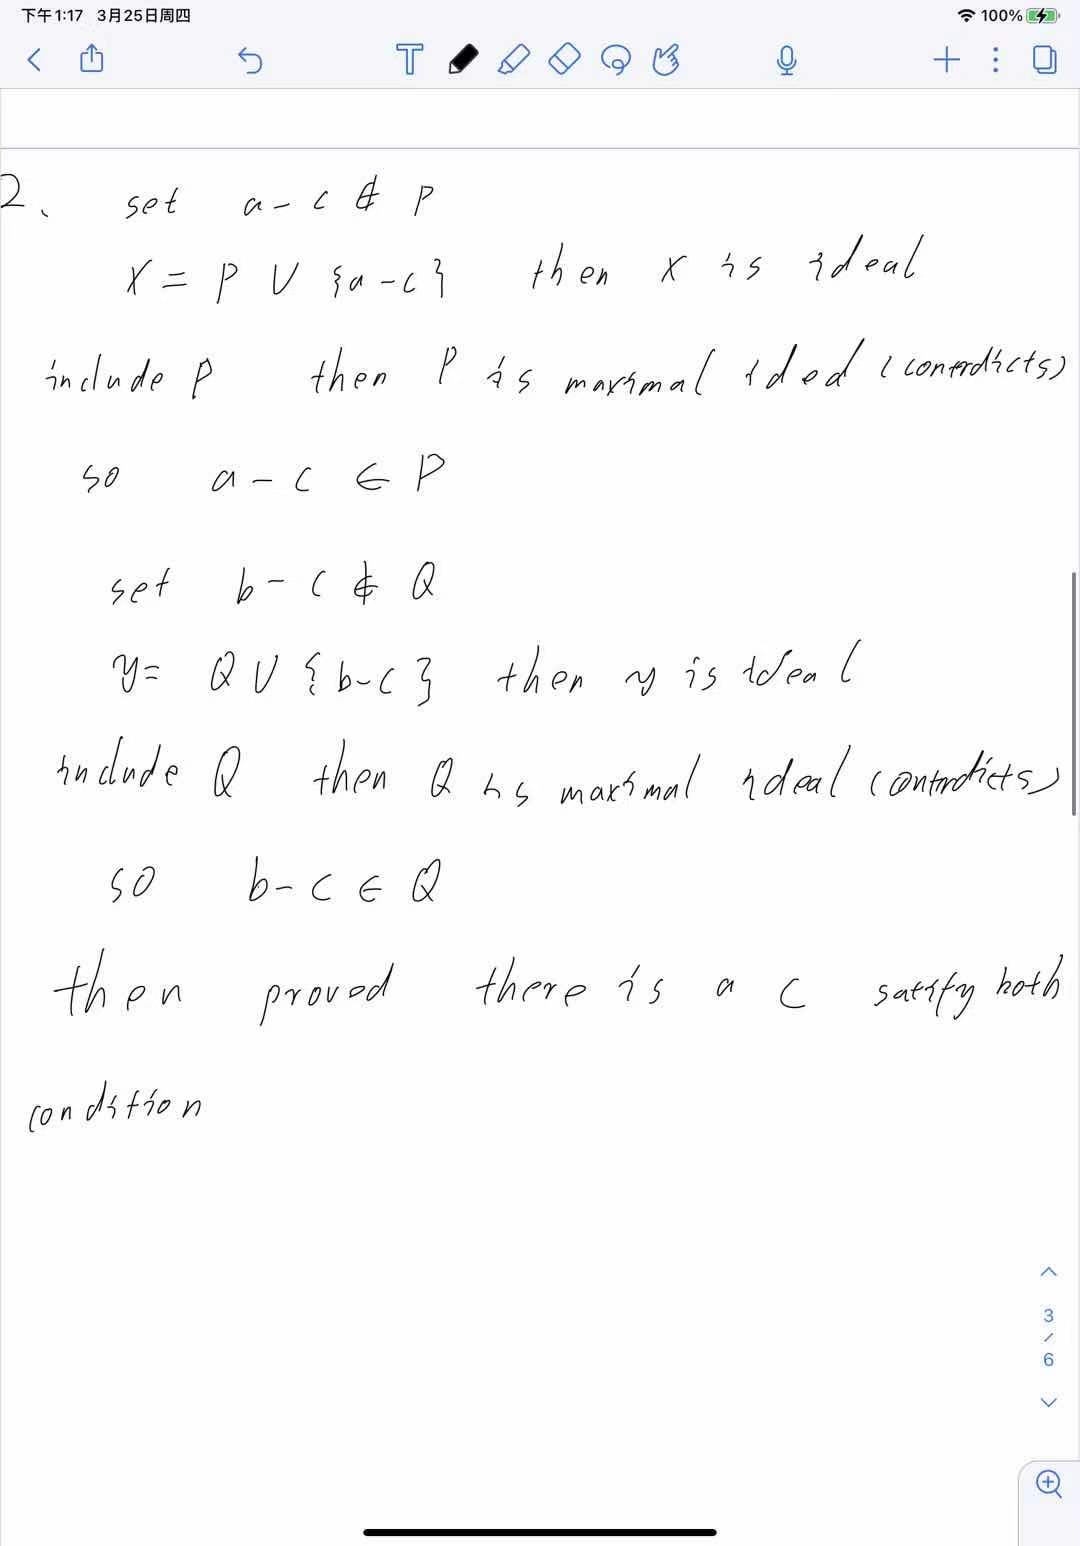 下午1:17 3月25日周四
100%
2、 set a-c ∉ P
X = P ∪ {a-c} then X is ideal
include P then P is maximal ided (contrdicts)
so a-c ∈ P
set b-c ∉ Q
y= Q ∪ {b-c} then y is ideal
include Q then Q is maximal ideal (contrdicts)
so b-c ∈ Q
then proved there is a c satisfy both
condition
3
/
6